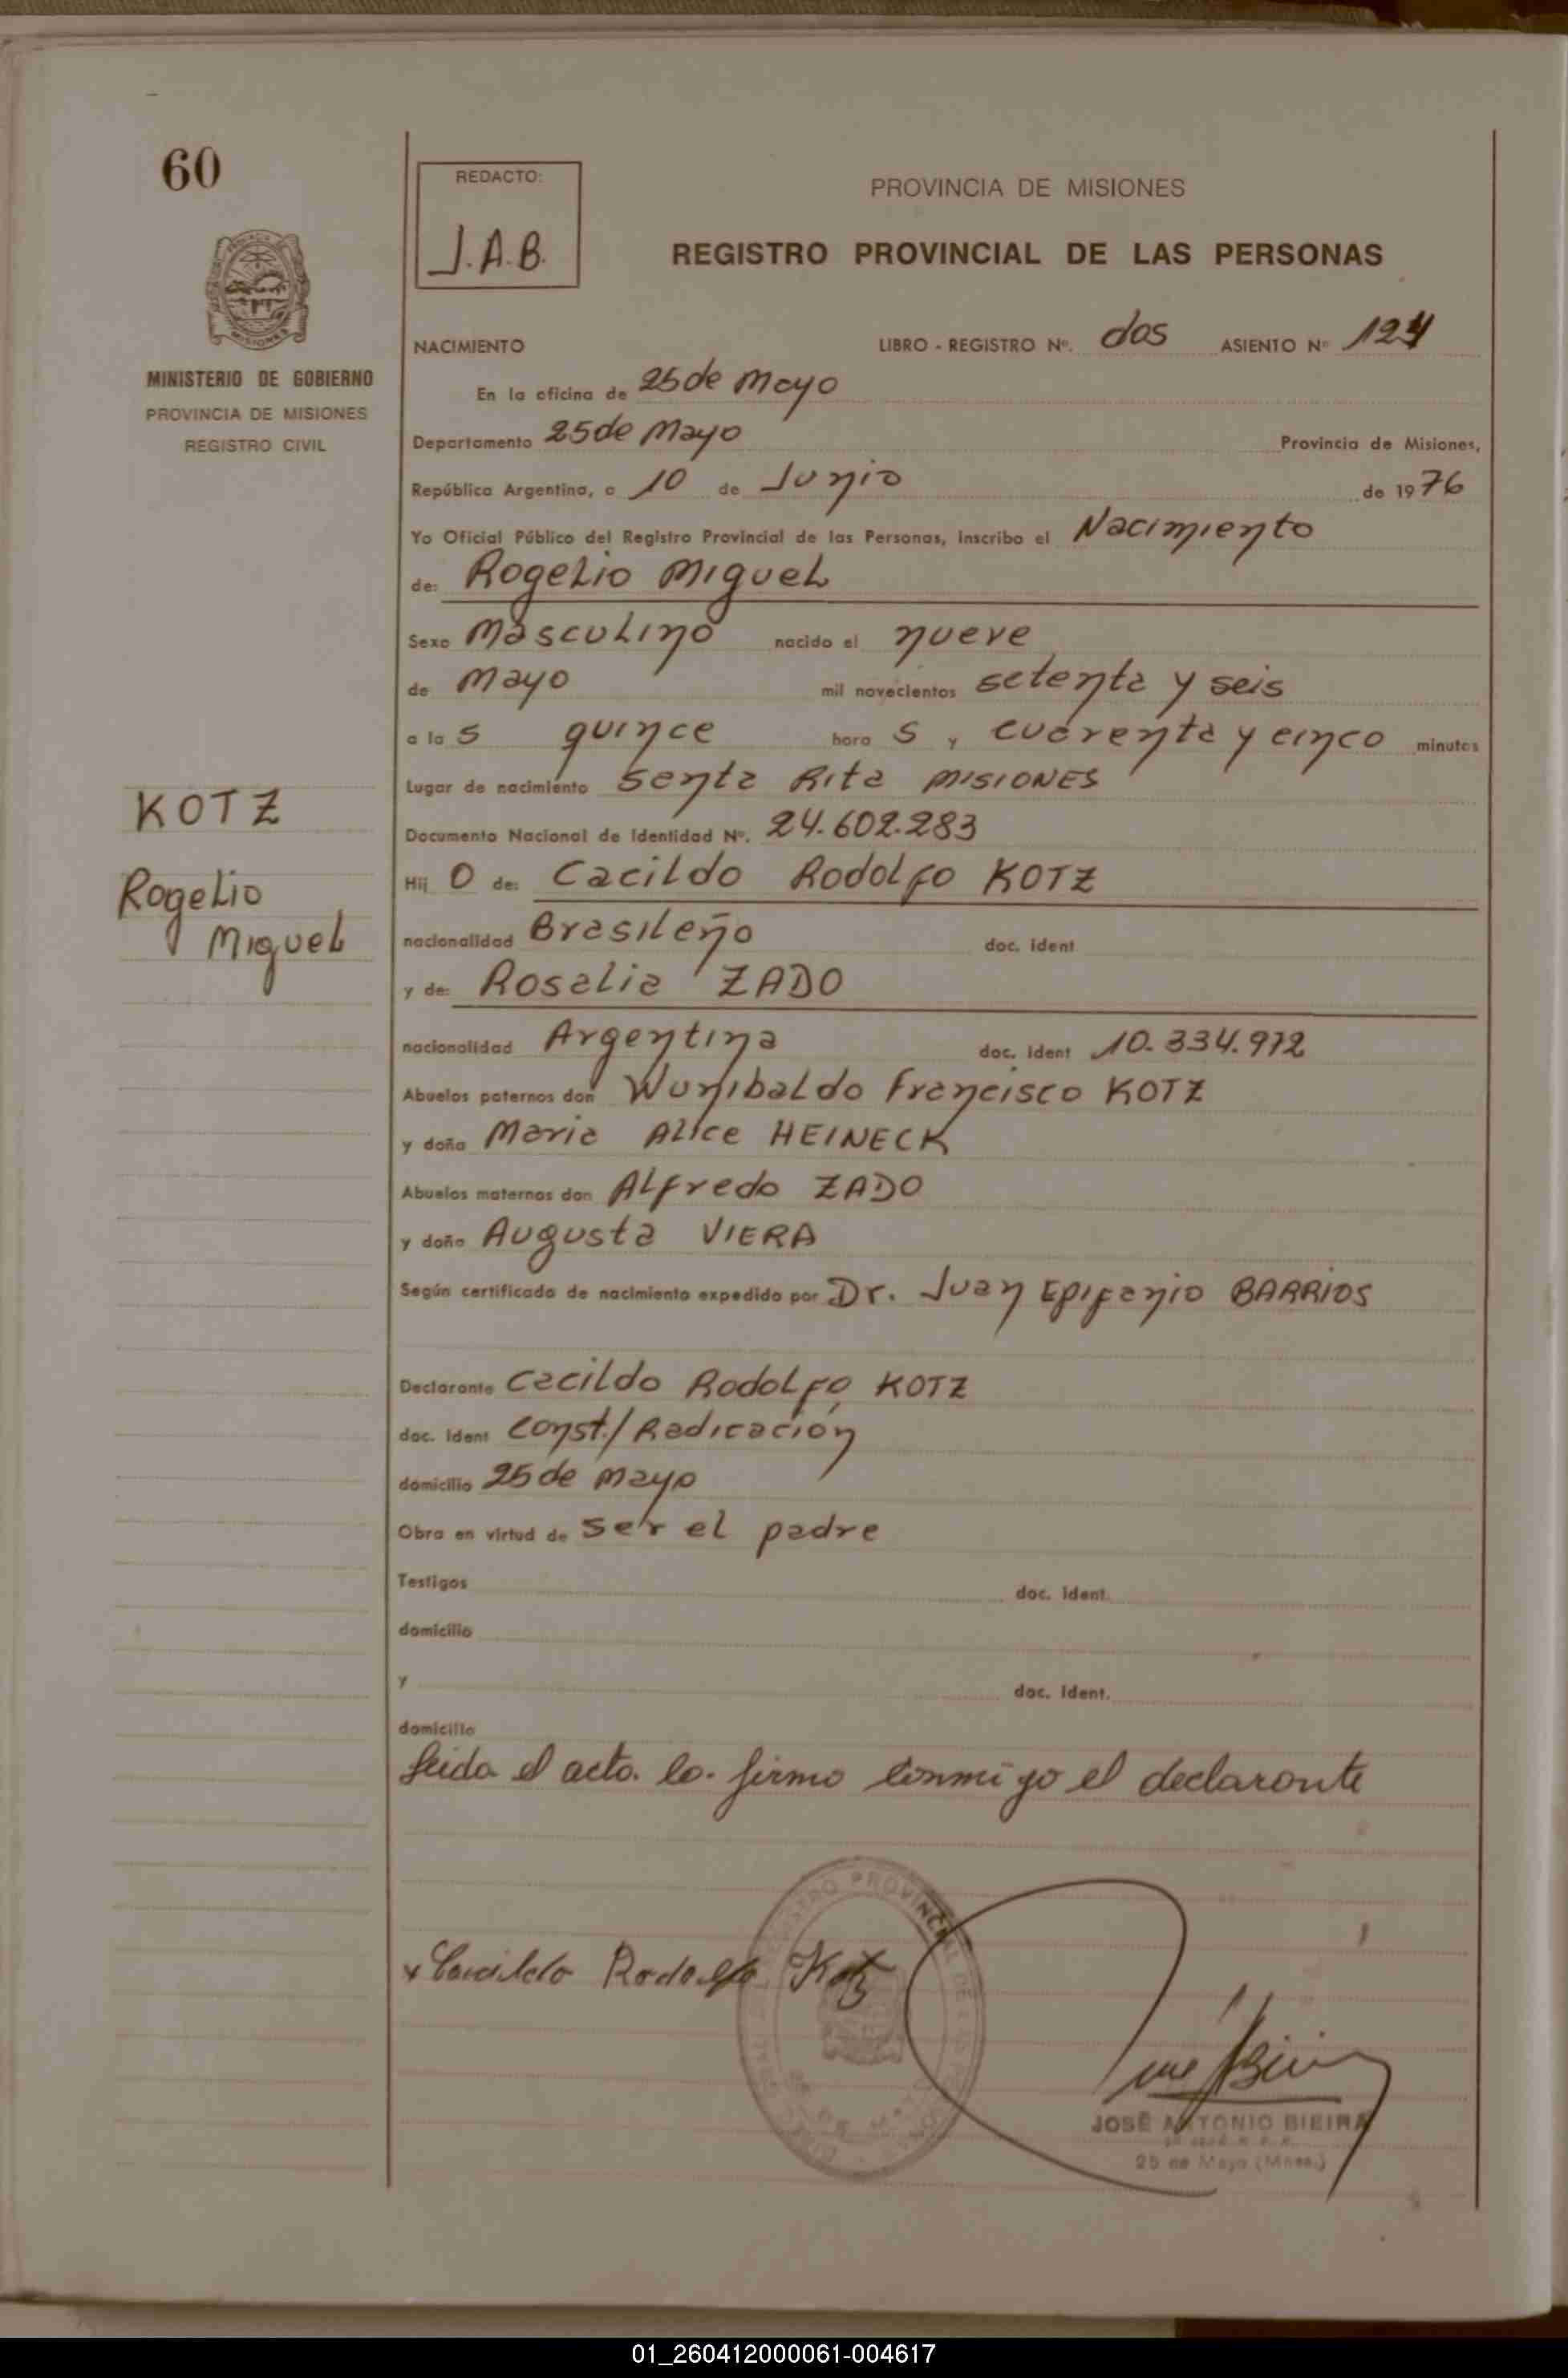 60
REDACTO:
J.A.B.
PROVINCIA DE MISIONES
REGISTRO PROVINCIAL DE LAS PERSONAS
MINISTERIO DE GOBIERNO
PROVINCIA DE MISIONES
REGISTRO CIVIL
NACIMIENTO LIBRO - REGISTRO Nº. dos ASIENTO Nº 124
En la oficina de 25 de Mayo
Departamento 25 de Mayo Provincia de Misiones,
República Argentina, a 10 de Junio de 1976
Yo Oficial Público del Registro Provincial de las Personas, inscribo el Nacimiento
de: Rogelio Miguel
Sexo Masculino nacido el nueve
de Mayo mil novecientos setenta y seis
a la s quince hora s y cuarenta y cinco minutos
Lugar de nacimiento Santa Rita MISIONES
Documento Nacional de Identidad Nº. 24.602.283
Hij o de: Cacildo Rodolfo KOTZ
nacionalidad Brasileño doc. ident
y de: Rosalia ZADO
nacionalidad Argentina doc. ident 10.334.972
Abuelos paternos don Wunibaldo Francisco KOTZ
y doña Maria Alice HEINECK
Abuelos maternos don Alfredo ZADO
y doña Augusta VIERA
Según certificado de nacimiento expedido por Dr. Juan Epifanio BARRIOS
Declarante Cacildo Rodolfo KOTZ
doc. ident const./Radicación
domicilio 25 de mayo
Obra en virtud de ser el padre
Testigos doc. ident.
domicilio
y doc. ident.
domicilio
Leida el acta. la. firma conmigo el declarante
KOTZ
Rogelio
Miguel
x Cacildo Rodolfo Kotz
JOSÉ ANTONIO BIEIRA
25 de Mayo (Mnes.)
01_260412000061-004617